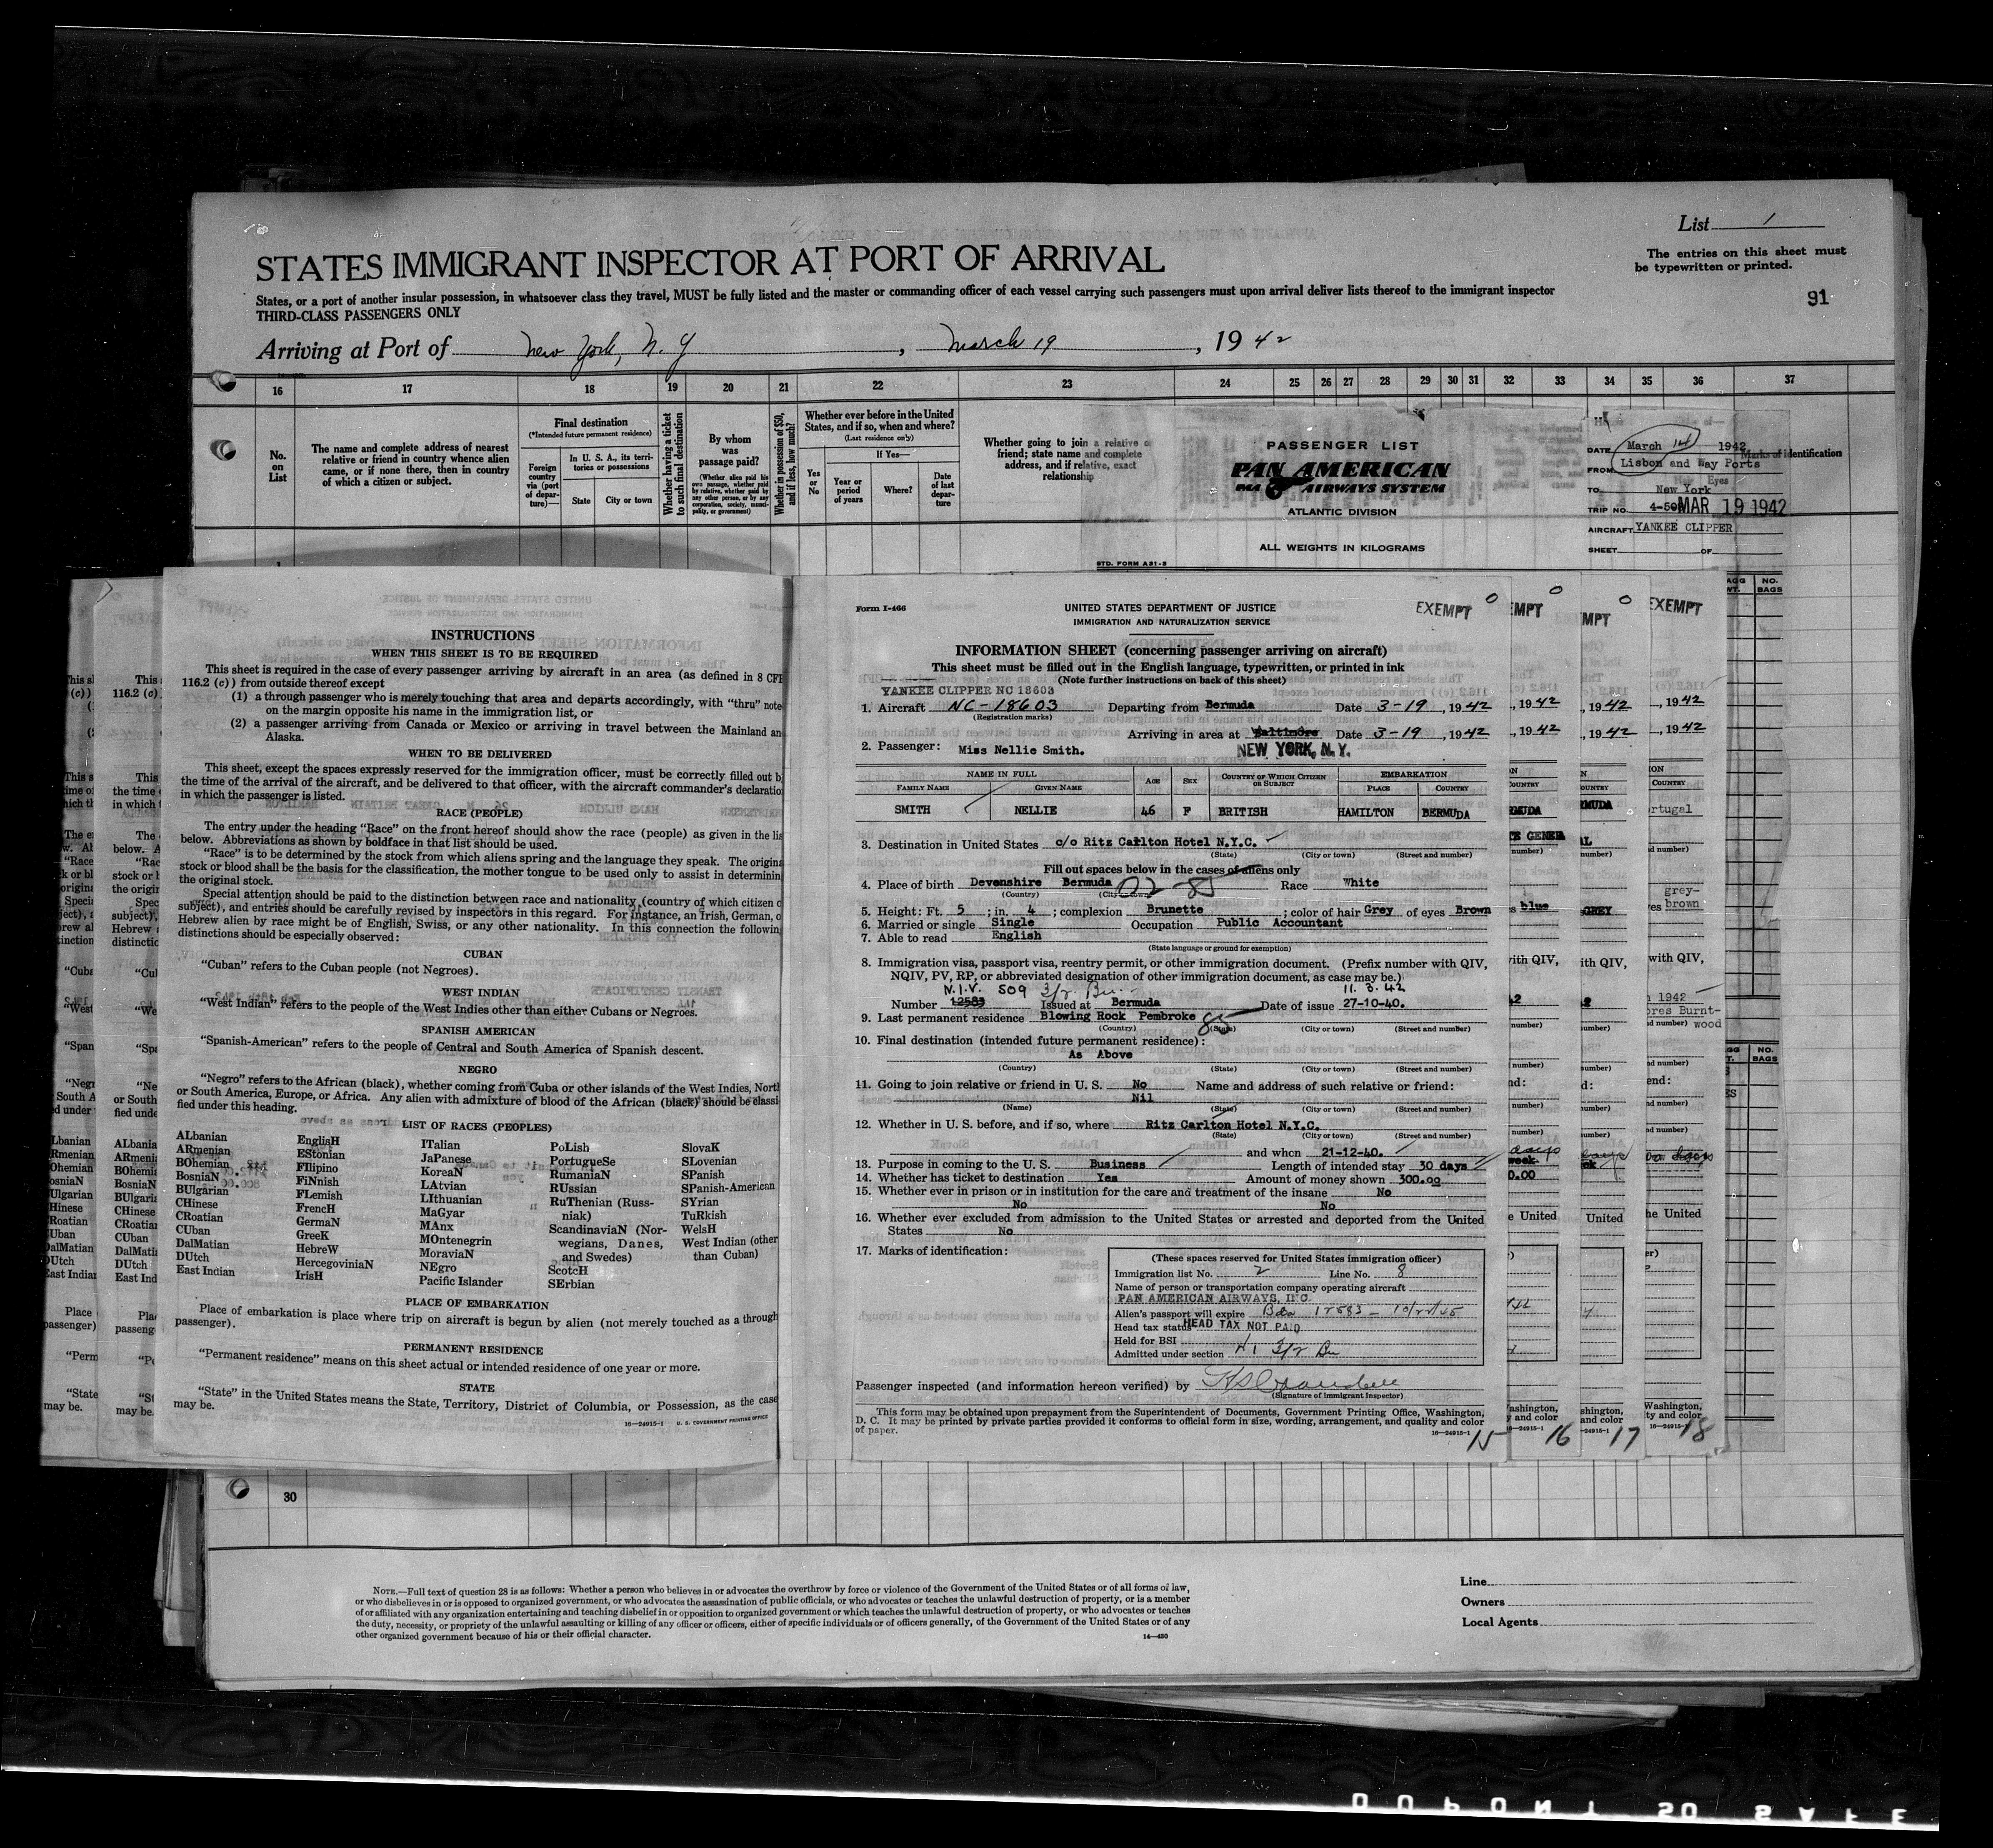 List 1
The entries on this sheet must
be typewritten or printed.
91
STATES IMMIGRANT INSPECTOR AT PORT OF ARRIVAL
States, or a port of another insular possession, in whatsoever class they travel, MUST be fully listed and the master or commanding officer of each vessel carrying such passengers must upon arrival deliver lists thereof to the immigrant inspector
THIRD-CLASS PASSENGERS ONLY
Arriving at Port of New York, N. Y , March 19 , 19 42
16 17 18 19 20 21 22 23 24 25 26 27 28 29 30 31 32 33 34 35 36 37
No. on List
The name and complete address of nearest
relative or friend in country whence alien
came, or if none there, then in country
of which a citizen or subject.
Final destination
(*Intended future permanent residence)
Foreign country via (port of departure)—
In U. S. A., its territories or possessions
State City or town
Whether having a ticket to such final destination
By whom was passage paid?
(Whether alien paid his own passage, whether paid by relative, whether paid by any other person, or by any corporation, society, municipality, or government)
Whether in possession of $50, and if less, how much?
Whether ever before in the United
States, and if so, when and where?
(Last residence only)
Yes or No
If Yes—
Year or period of years
Where?
Date of last departure
Whether going to join a relative or
friend; state name and complete
address, and if relative, exact
relationship
Marks of identification
PASSENGER LIST
PAN AMERICAN
PAA AIRWAYS SYSTEM
ATLANTIC DIVISION
ALL WEIGHTS IN KILOGRAMS
STD. FORM A31-3
DATE March 14 1942
FROM Lisbon and Way Ports
TO New York
TRIP NO. 4-50 MAR 19 1942
AIRCRAFT YANKEE CLIPPER
SHEET OF
INSTRUCTIONS
WHEN THIS SHEET IS TO BE REQUIRED
This sheet is required in the case of every passenger arriving by aircraft in an area (as defined in 8 CFR
116.2 (c)) from outside thereof except
(1) a through passenger who is merely touching that area and departs accordingly, with "thru" note
on the margin opposite his name in the immigration list, or
(2) a passenger arriving from Canada or Mexico or arriving in travel between the Mainland an
Alaska.
WHEN TO BE DELIVERED
This sheet, except the spaces expressly reserved for the immigration officer, must be correctly filled out b
the time of the arrival of the aircraft, and be delivered to that officer, with the aircraft commander's declaratio
in which the passenger is listed.
RACE (PEOPLE)
The entry under the heading "Race" on the front hereof should show the race (people) as given in the lis
below. Abbreviations as shown by boldface in that list should be used.
"Race" is to be determined by the stock from which aliens spring and the language they speak. The origina
stock or blood shall be the basis for the classification, the mother tongue to be used only to assist in determinin
the original stock.
Special attention should be paid to the distinction between race and nationality (country of which citizen o
subject), and entries should be carefully revised by inspectors in this regard. For instance, an Irish, German, o
Hebrew alien by race might be of English, Swiss, or any other nationality. In this connection the followin
distinctions should be especially observed:
CUBAN
"Cuban" refers to the Cuban people (not Negroes).
WEST INDIAN
"West Indian" refers to the people of the West Indies other than either Cubans or Negroes.
SPANISH AMERICAN
"Spanish-American" refers to the people of Central and South America of Spanish descent.
NEGRO
"Negro" refers to the African (black), whether coming from Cuba or other islands of the West Indies, Nort
or South America, Europe, or Africa. Any alien with admixture of blood of the African (black) should be classi
fied under this heading.
LIST OF RACES (PEOPLES)
ALbanian
ARmenian
BOhemian
BosniaN
BUlgarian
CHinese
CRoatian
CUban
DalMatian
DUtch
East Indian
EnglisH
EStonian
FIlipino
FiNnish
FLemish
FrencH
GermaN
GreeK
HebreW
HercegoviniaN
IrisH
ITalian
JaPanese
KoreaN
LAtvian
LIthuanian
MaGyar
MAnx
MOntenegrin
MoraviaN
NEgro
Pacific Islander
PoLish
PortugueSe
RumaniaN
RUssian
RuThenian (Russ-
niak)
ScandinaviaN (Nor-
wegians, Danes,
and Swedes)
ScotcH
SErbian
SlovaK
SLovenian
SPanish
SPanish-American
SYrian
TuRkish
WelsH
West Indian (other
than Cuban)
PLACE OF EMBARKATION
Place of embarkation is place where trip on aircraft is begun by alien (not merely touched as a through
passenger).
PERMANENT RESIDENCE
"Permanent residence" means on this sheet actual or intended residence of one year or more.
STATE
"State" in the United States means the State, Territory, District of Columbia, or Possession, as the case
may be.
16—24915-1 U. S. GOVERNMENT PRINTING OFFICE
Form I-466
UNITED STATES DEPARTMENT OF JUSTICE
IMMIGRATION AND NATURALIZATION SERVICE
EXEMPT
INFORMATION SHEET (concerning passenger arriving on aircraft)
This sheet must be filled out in the English language, typewritten, or printed in ink
(Note further instructions on back of this sheet)
YANKEE CLIPPER NC 18603
1. Aircraft NC-18603 Departing from Bermuda Date 3-19, 1942
(Registration marks)
Arriving in area at Baltimore Date 3-19, 1942
NEW YORK, N. Y.
2. Passenger: Miss Nellie Smith.
NAME IN FULL AGE SEX COUNTRY OF WHICH CITIZEN OR SUBJECT EMBARKATION
FAMILY NAME GIVEN NAME PLACE COUNTRY
SMITH NELLIE 46 F BRITISH HAMILTON BERMUDA
3. Destination in United States c/o Ritz Carlton Hotel N.Y.C.
(State) (City or town) (Street and number)
Fill out spaces below in the cases of aliens only
4. Place of birth Devonshire Bermuda Race White
(Country) (City or town)
5. Height: Ft. 5 ; in. 4 ; complexion Brunette ; color of hair Grey of eyes Brown
6. Married or single Single Occupation Public Accountant
7. Able to read English
(State language or ground for exemption)
8. Immigration visa, passport visa, reentry permit, or other immigration document. (Prefix number with QIV,
NQIV, PV, RP, or abbreviated designation of other immigration document, as case may be.)
N.I.V. 509 3/2 Bu. 11. 3. 42
Number 12583 Issued at Bermuda Date of issue 27-10-40.
9. Last permanent residence Blowing Rock Pembroke 85
(Country) (State) (City or town) (Street and number)
10. Final destination (intended future permanent residence):
As Above
(Country) (State) (City or town) (Street and number)
11. Going to join relative or friend in U. S. No Name and address of such relative or friend:
Nil
(Name) (State) (City or town) (Street and number)
12. Whether in U. S. before, and if so, where Ritz Carlton Hotel N.Y.C.
(State) (City or town) (Street and number)
and when 21-12-40.
13. Purpose in coming to the U. S. Business Length of intended stay 30 days
14. Whether has ticket to destination Yes Amount of money shown 300.00
15. Whether ever in prison or in institution for the care and treatment of the insane No
No No
16. Whether ever excluded from admission to the United States or arrested and deported from the United
States No
17. Marks of identification:
(These spaces reserved for United States immigration officer)
Immigration list No. 2 Line No. 8
Name of person or transportation company operating aircraft
PAN AMERICAN AIRWAYS, INC.
Alien's passport will expire 12583 - 10/22/45
Head tax status HEAD TAX NOT PAID
Held for BSI
Admitted under section 3/2 Bu
Passenger inspected (and information hereon verified) by
(Signature of immigrant inspector)
This form may be obtained upon prepayment from the Superintendent of Documents, Government Printing Office, Washington,
D. C. It may be printed by private parties provided it conforms to official form in size, wording, arrangement, and quality and color
of paper.
16—24915-1
15 16 17 18
30
NOTE.—Full text of question 28 is as follows: Whether a person who believes in or advocates the overthrow by force or violence of the Government of the United States or of all forms of law,
or who disbelieves in or is opposed to organized government, or who advocates the assassination of public officials, or who advocates or teaches the unlawful destruction of property, or is a member
of or affiliated with any organization entertaining and teaching disbelief in or opposition to organized government or which teaches the unlawful destruction of property, or who advocates or teaches
the duty, necessity, or propriety of the unlawful assaulting or killing of any officer or officers, either of specific individuals or of officers generally, of the Government of the United States or of any
other organized government because of his or their official character.
14—430
Line
Owners
Local Agents